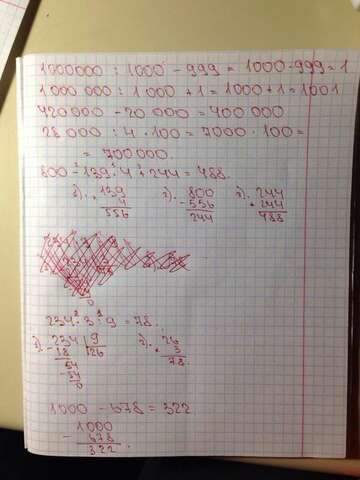 1000000 : 1000 - 999 = 1000-999=1
1000 000 : 1 000 +1=1000+1=1001
420000 -20 000 = 400 000
28 000 : 4 · 100 = 7000 · 100=
= 700 000.
800 - 139 · 4 + 244 = 488.
139 4 556
800 - 556 244
244 + 244 488
234 : 3 · 9 = 78.
234 9 - 18 26 54 - 54 0
26 · 3 78.
1000 - 678 = 322
1000
- 678
322.